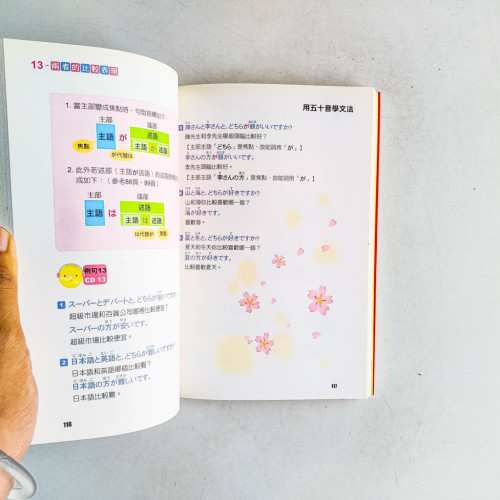 13-兩者的比較表現
1. 當主部變成焦點時,句型結構如下:
主部 述部
主語 が 述語
主語 が 述語
焦點 が代替は
2. 此外若述部(主語が述語)
成如下:(參考88頁,89頁)
主部 述部
主語 は 述語
主語 は 述語
は代替が 焦點
例句13
CD 13
1 スーパーとデパートと、どちらが安いですか?
超級市場和百貨公司哪邊比較便宜?
スーパーの方が安いです。
超級市場比較便宜。
2 日本語と英語と、どちらが難しいですか?
日本語和英語哪個比較難?
日本語の方が難しいです。
日本語比較難。
116
用五十音學文法
3 陳さんと李さんと、どちらが頭がいいですか?
陳先生和李先生哪個頭腦比較好?
【主部主語「どちら」是焦點,故助詞用「が」】
李さんの方が頭がいいです。
李先生頭腦比較好。
【主部主語「李さんの方」是焦點,故助詞用「が」】
4 山と海と、どちらが好きですか?
山和海你比較喜歡哪一個?
海が好きです。
喜歡海。
5 夏と冬と、どちらが好きですか?
夏天和冬天你比較喜歡哪一個?
夏の方が好きです。
比較喜歡夏天。